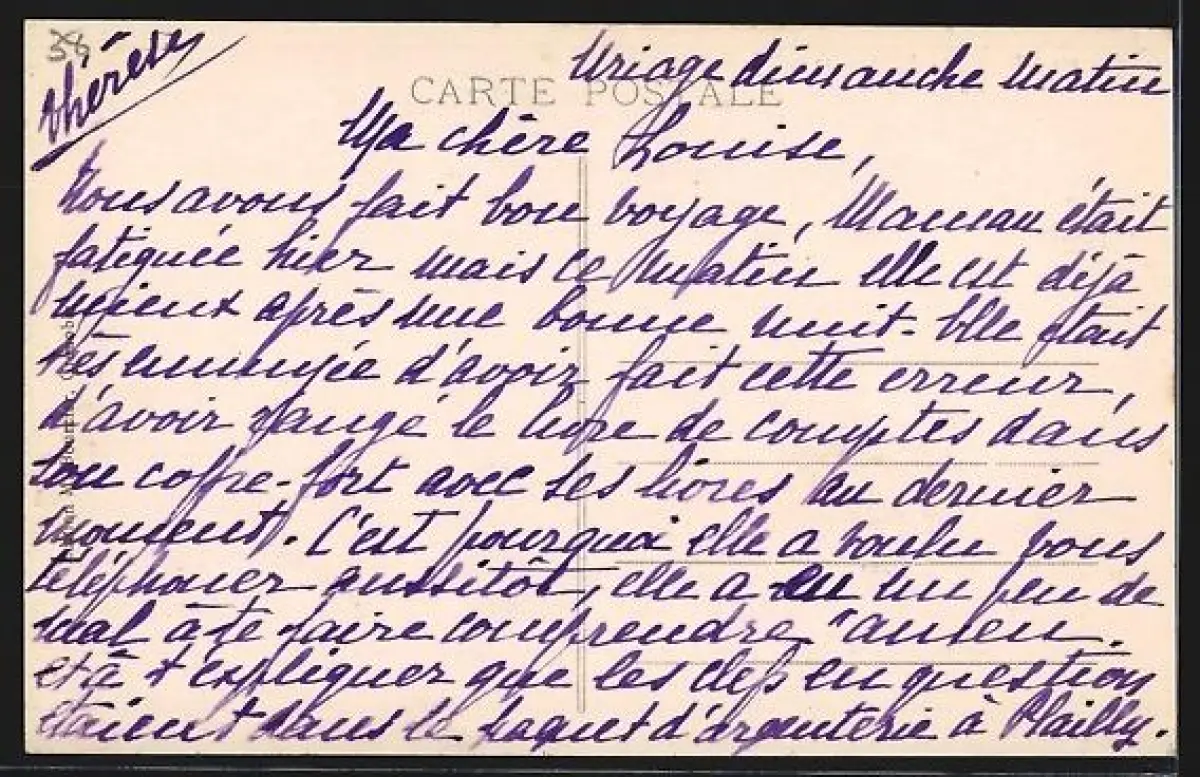 54
Thérèse
CARTE POSTALE
Uriage dimanche matin
Ma chère Louise,
Nous avons fait bon voyage, Maman était
fatiguée hier mais ce matin elle est déjà
mieux après une bonne nuit - Elle était
très ennuyée d'avoir fait cette erreur,
d'avoir rangé le livre de comptes dans
son coffre-fort avec ses livres au dernier
moment. C'est pourquoi elle a voulu vous
téléphoner aussitôt, elle a eu un peu de
mal à te faire comprendre
et à t'expliquer que les clefs en question
étaient dans le paquet d'argenterie à Plailly.